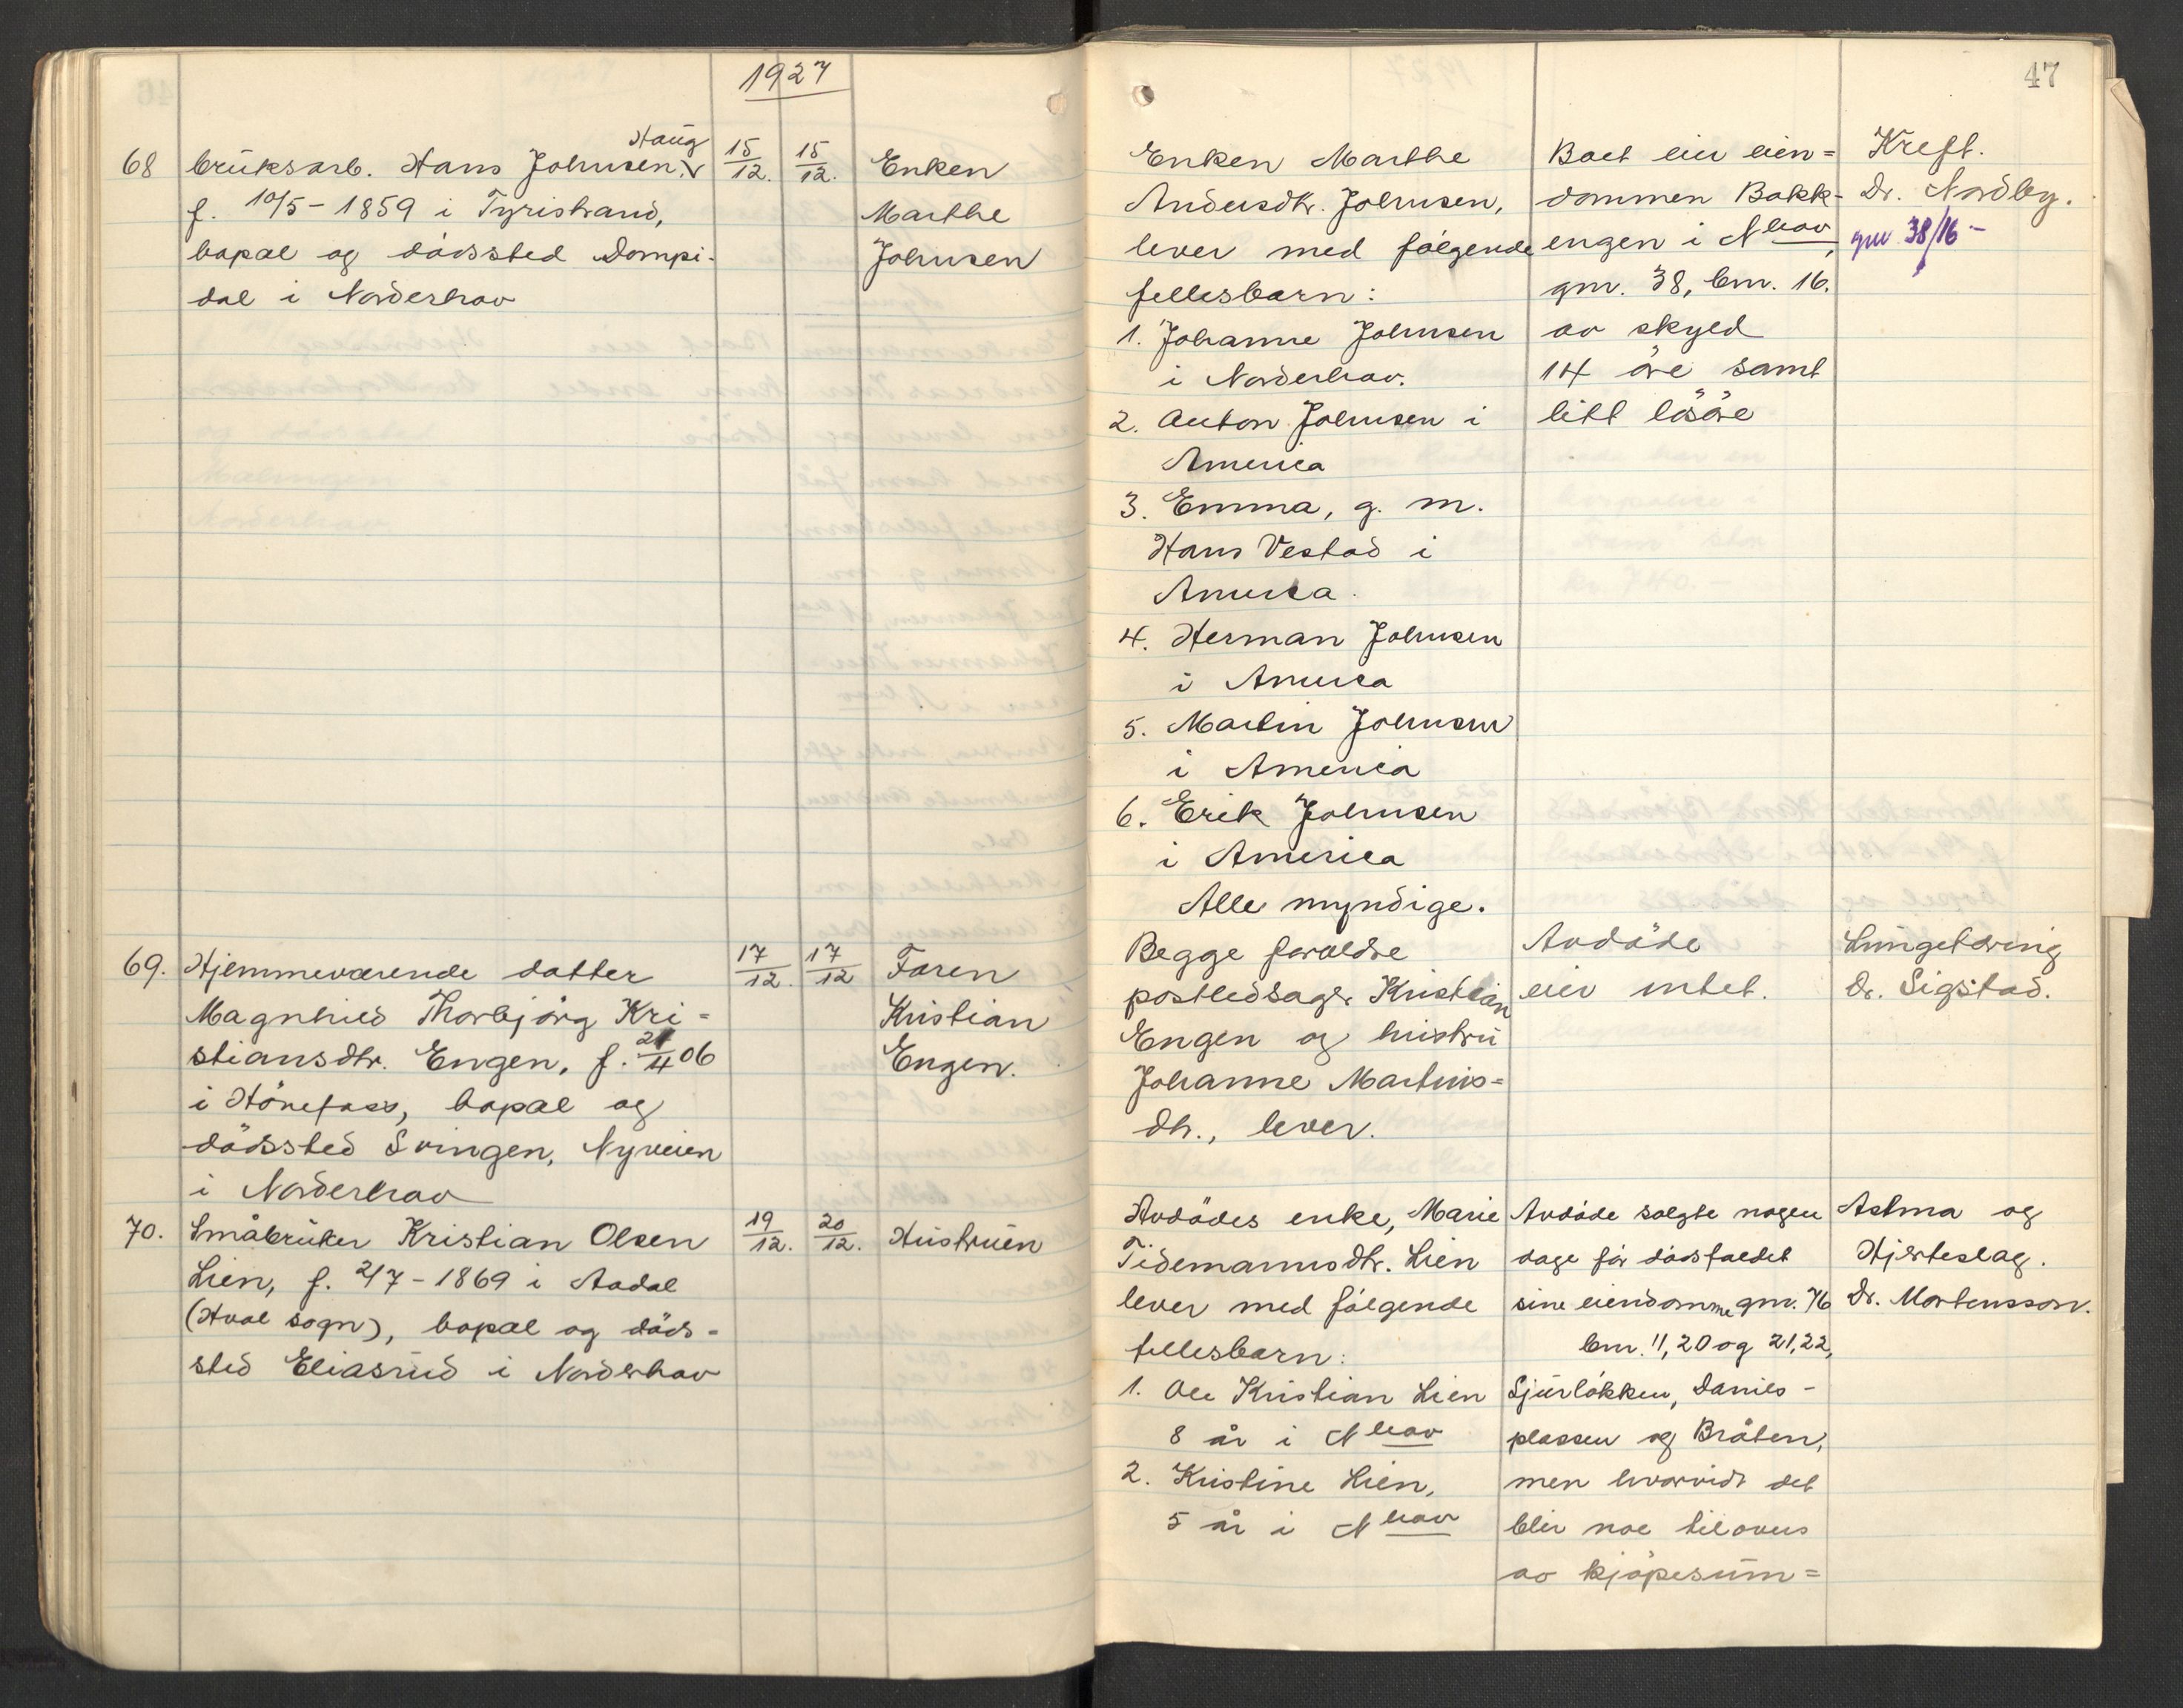 1927
47
68 bruksarb. Hans Johnsen Haug
f. 10/5 - 1859 i Tyristrand,
bopæl og dödssted Dompi-
dal i Norderhov
15/12. 15/12.
Enken
Marthe
Johnsen
Enken Marthe
Andersdtr. Johnsen,
lever med fölgende
fellesbarn:
1. Johanne Johnsen
i Norderhov.
2. Anton Johnsen i
America
3. Emma, g. m.
Hans Vestad i
America.
4. Herman Johnsen
i America
5. Martin Johnsen
i America
6. Erik Johnsen
i America
Alle myndige.
Boet eier eien=
dommen Bakk-
engen i Nhov,
gnr. 38, bnr. 16.
av skyld
14 öre samt
litt lösöre
Kreft.
Dr. Nordby.
gnr 38/16 -
69. Hjemmeværende datter
Magnhild Thorbjörg Kri=
stiansdtr. Engen, f. 21/4 06
i Hönefoss, bopæl og
dödssted Svingen, Nyveien
i Norderhov
17/12. 17/12
Faren
Kristian
Engen.
Begge foreldre
postledsager Kristian
Engen og hustru
Johanne Martins=
dtr., lever.
Avdöde
eier intet.
Lungetæring
Dr. Sigstad.
70. Småbruker Kristian Olsen
Lien, f. 2/7 - 1869 i Aadal
(Hval sogn), bopæl og döds=
sted Eliasrud i Norderhov
19/12. 20/12.
Hustruen
Avdödes enke, Marie
Tidemannsdtr. Lien
lever med fölgende
fellesbarn:
1. Ole Kristian Lien
8 år i Nhov
2. Kristine Lien,
5 år i Nhov
Avdöde solgte nogen
dage för dödsfaldet
sine eiendomme gnr. 76
bnr. 11, 20 og 21, 22,
Sjurlökken, Daniels-
plassen og Bråten,
men hvorvidt det
blir noe tilovers
av kjöpesum=
Astma og
Hjerteslag.
Dr. Mortensson.